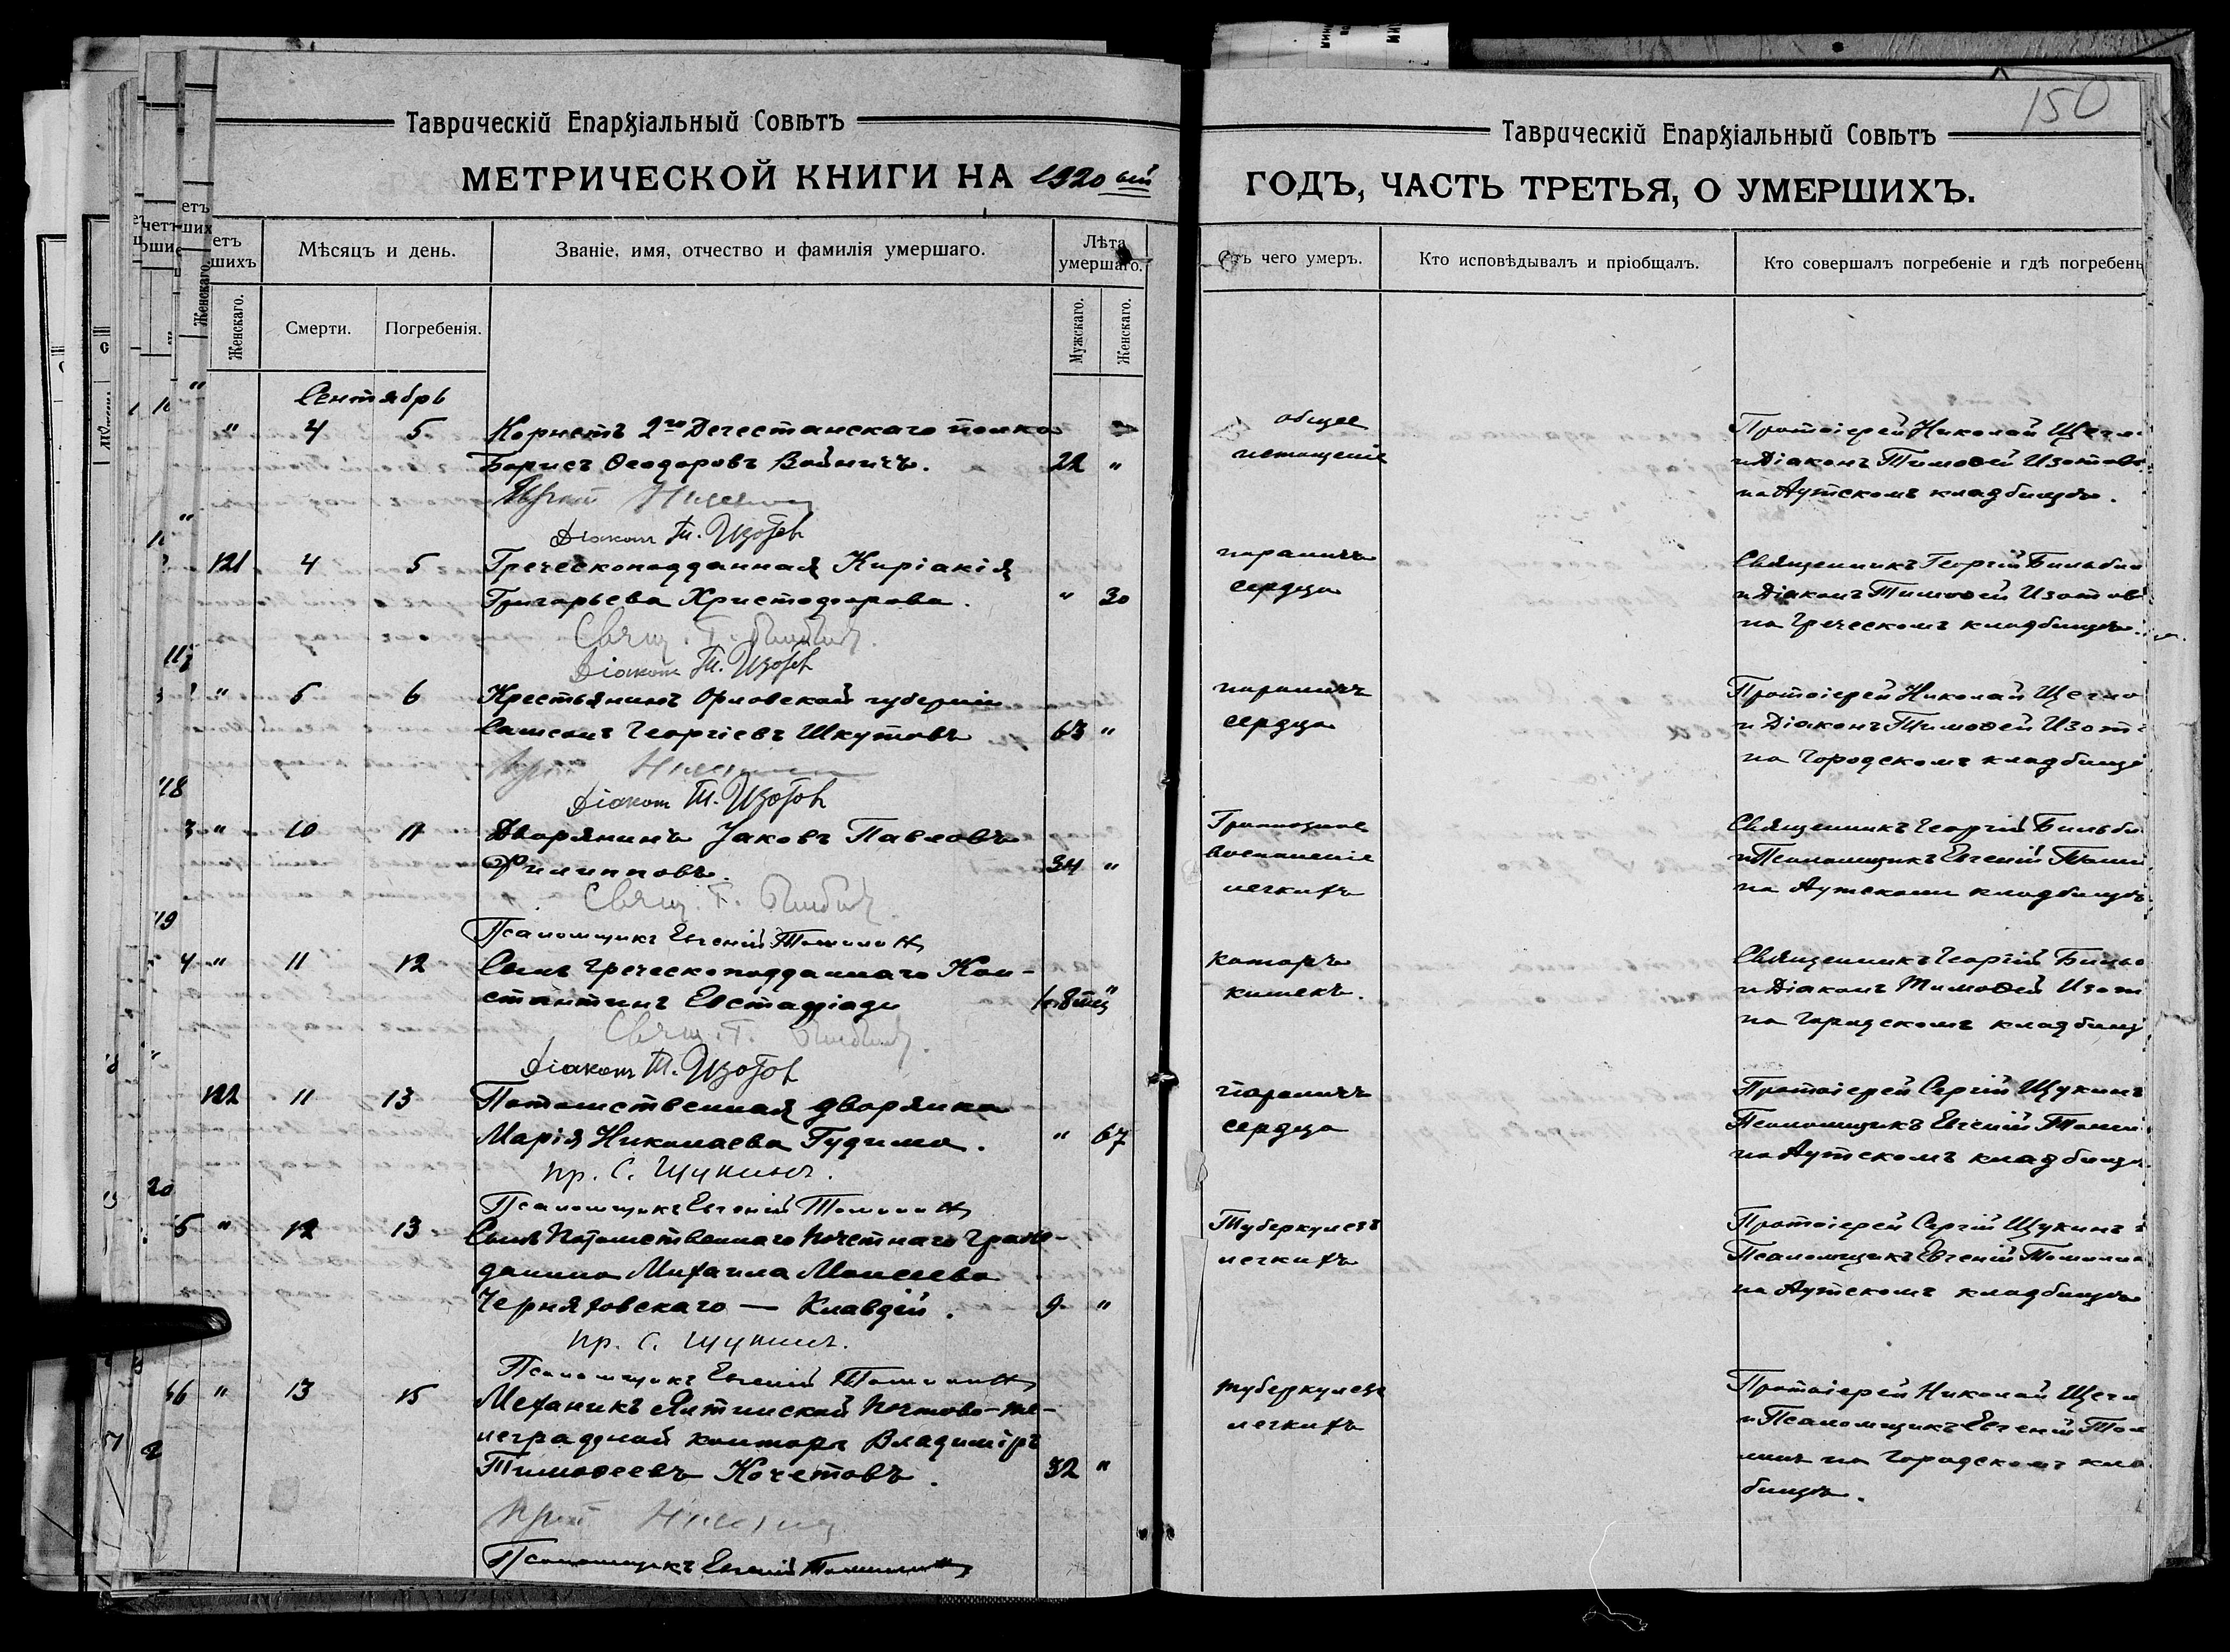 150
Таврическій Епархіальный Совѣтъ
МЕТРИЧЕСКОЙ КНИГИ НА 1920 ый
Мѣсяцъ и день.
Званіе, имя, отчество и фамилія умершаго.
Лѣта умершаго.
Женскаго.
Смерти.
Погребенія.
Мужскаго.
Женскаго.
Сентябрь
" 4 5 Корнетъ 2го Дагестанскаго полка
Борисъ Ѳеодоровъ Войничъ. 22 "
Діаконъ Т. Изотов
121 4 5 Греческоподданная Киріакія
Григорьева Христофорова. " 30
Свящ. Г.
Діаконъ Т. Изотов
" 5 6 Крестьянинъ Орловской губерніи
Самсонъ Георгіевъ Шкутовъ 63 "
Діаконъ Т. Изотов
" 10 11 Дворянинъ Іаковъ Павловъ
Филипповъ. 34 "
Свящ. Г.
Псаломщикъ Евгеній Томилин
" 11 12 Сынъ греческоподданнаго Кон-
стантинъ Евстафіади
Свящ. Г.
Діаконъ Т. Изотов
122 11 13 Потомственная дворянка
Марія Николаева Гудима. " 67
пр. С. Щукинъ.
Псаломщикъ Евгеній Томилин
" 12 13 Сынъ Потомственнаго Почетнаго Граж-
данина Михаила Моисеева
Черняховскаго — Клавдій. 9 "
пр. С. Щукинъ.
Псаломщикъ Евгеній Томилин
" 13 15 Механикъ Ялтинской Почтово-те-
леграфной конторы Владиміръ
Тимоѳеевъ Кочетовъ. 32 "
Псаломщикъ Евгеній Томилин
Таврическій Епархіальный Совѣтъ
ГОДЪ, ЧАСТЬ ТРЕТЬЯ, О УМЕРШИХЪ.
Отъ чего умеръ.
Кто исповѣдывалъ и пріобщалъ.
Кто совершалъ погребеніе и гдѣ погребены
общее Протоіерей Николай
истощеніе и Діаконъ Тимоѳей Изотовъ
на Аутскомъ кладбищѣ.
параличъ Священникъ Георгій
сердца и Діаконъ Тимоѳей Изотовъ
на Греческомъ кладбищѣ.
параличъ Протоіерей Николай
сердца и Діаконъ Тимоѳей Изот
на Городскомъ кладбищѣ
Священникъ Георгій
воспаленіе и Псаломщикъ Евгеній Томи
легкихъ на Аутскомъ кладбищѣ
катаръ Священникъ Георгій
кишекъ. и Діаконъ Тимоѳей Изот
на Городскомъ кладбищ
параличъ Протоіерей Сергій Щукинъ
сердца Псаломщикъ Евгеній Томи
на Аутскомъ кладбищѣ
Туберкулезъ Протоіерей Сергій Щукинъ
легкихъ Псаломщикъ Евгеній Томилин
на Аутскомъ кладбищѣ
туберкулезъ Протоіерей Николай
легкихъ и Псаломщикъ Евгеній Том
линъ на Городскомъ кла
бищѣ.